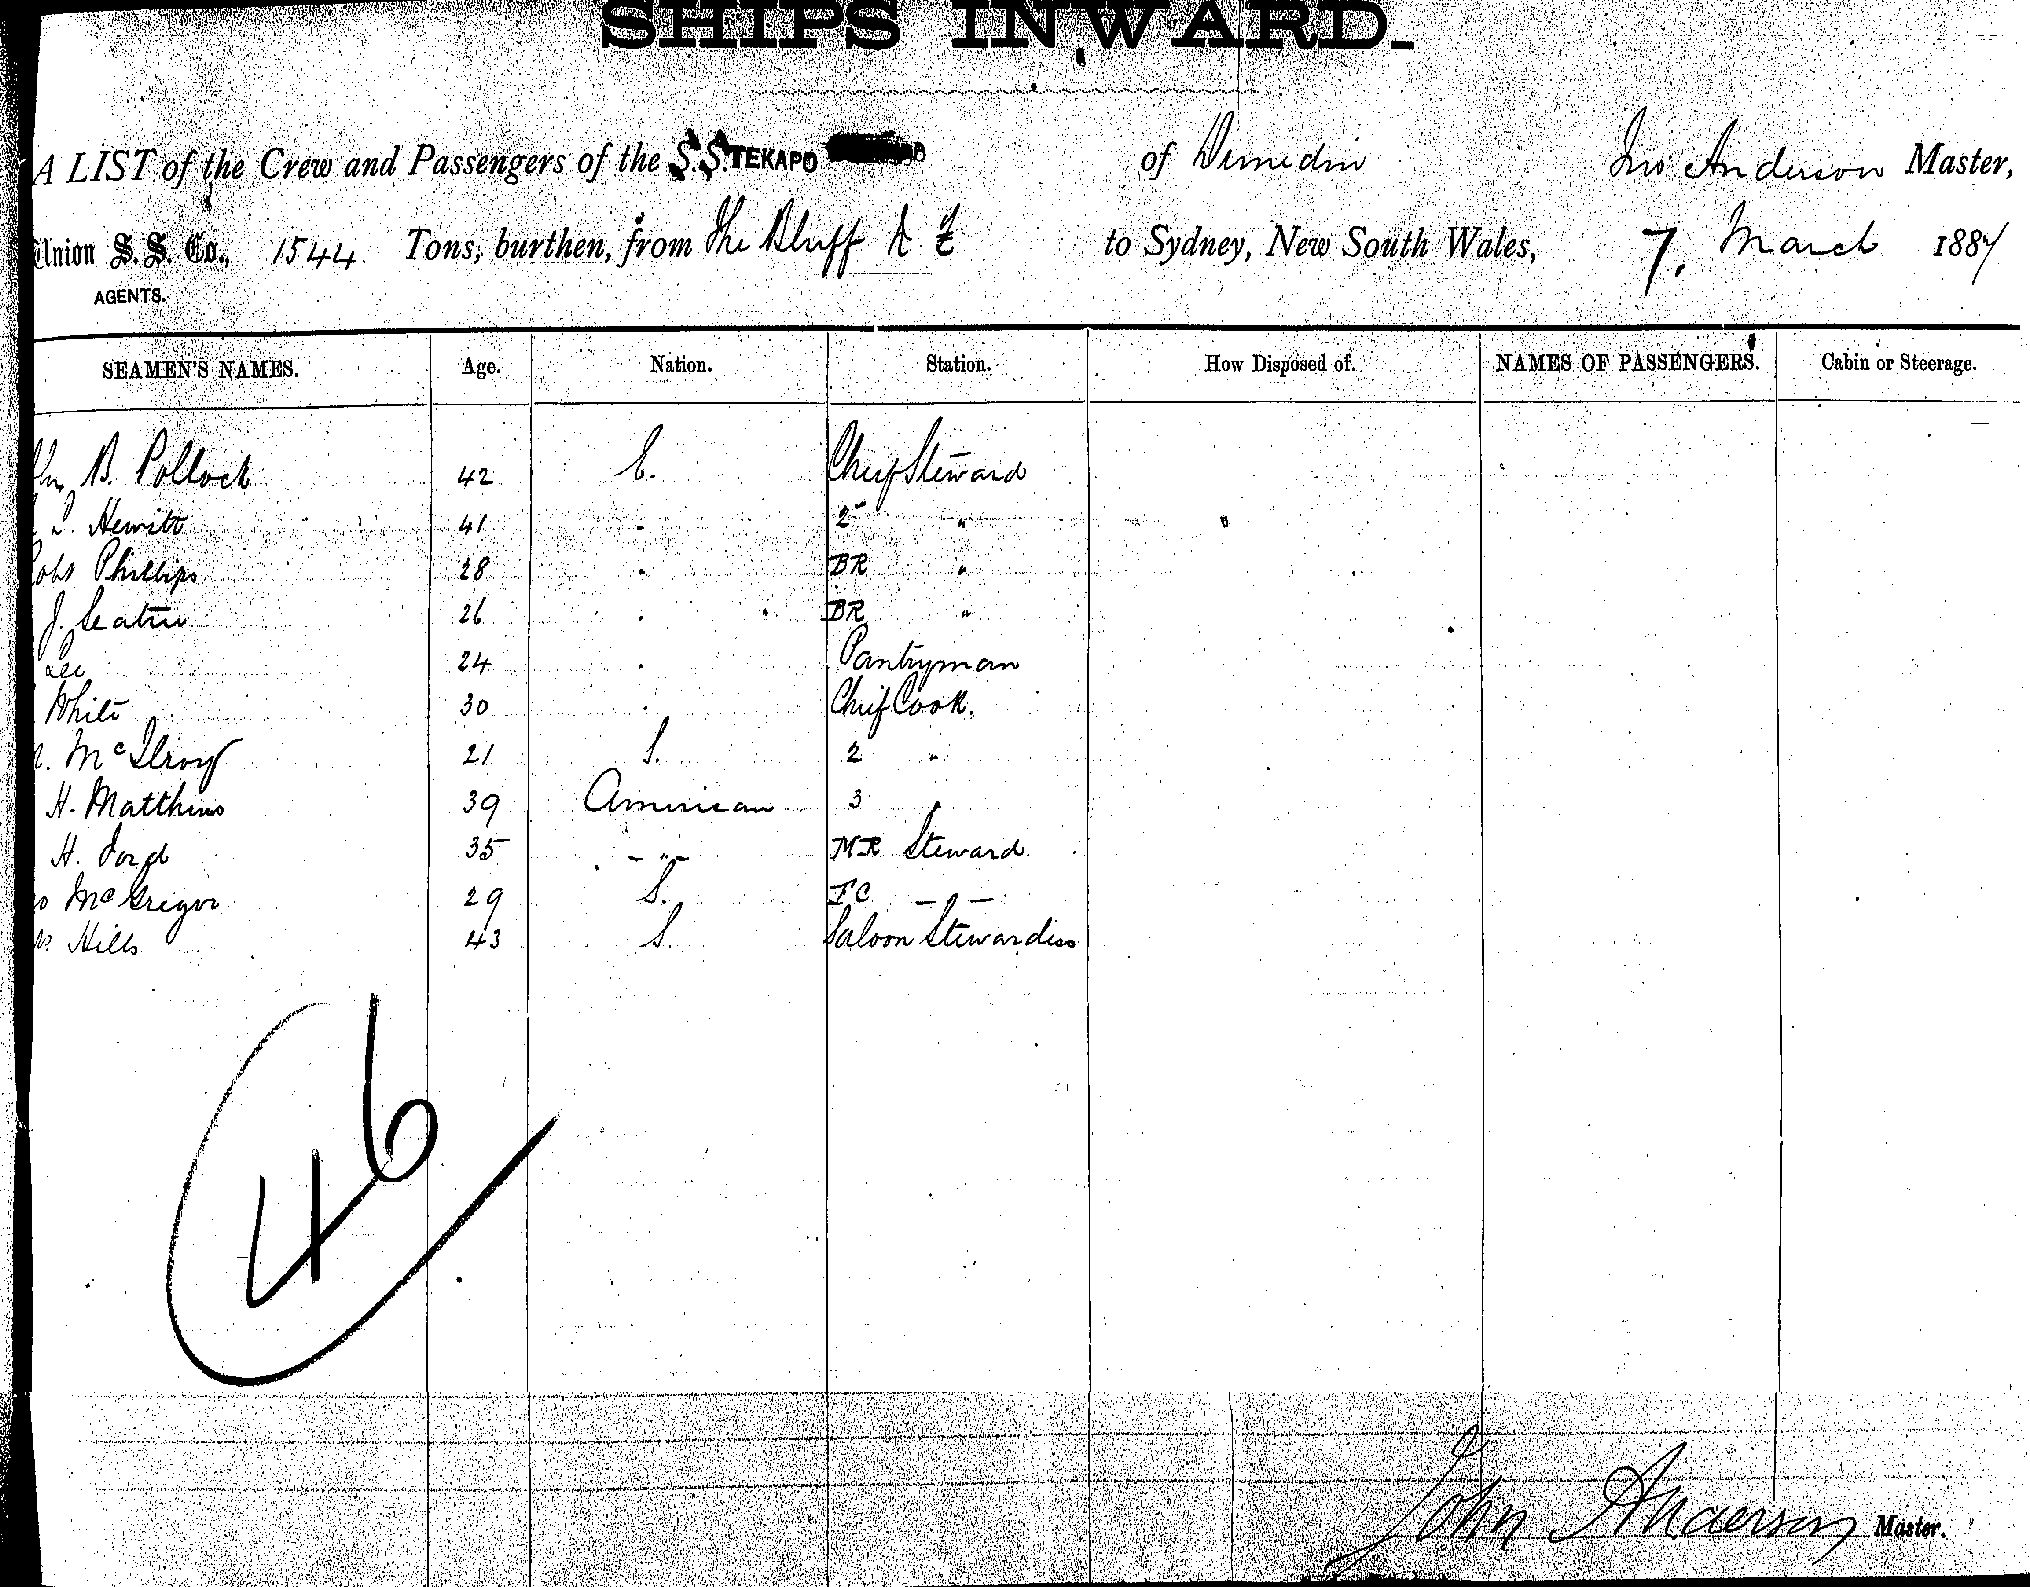 SHIPS INWARD.
A LIST of the Crew and Passengers of the S.S. TEKAPO of Dunedin Jno Anderson Master,
Union S. S. Co., 1544 Tons, burthen, from The Bluff N Z to Sydney, New South Wales, 7. March 1887
AGENTS.
SEAMEN'S NAMES. Age. Nation. Station. How Disposed of. NAMES OF PASSENGERS. Cabin or Steerage.
B. Pollock 42 E. Chief Steward
Hewitt 41 " 2 "
Phillips 28 " BR "
J. Seatu 26 " BR "
Lee 24 " Pantryman
White 30 " Chief Cook.
McIlroy 21 S. 2 "
H. Matthews 39 American 3 "
H. Ford 35 - " - MR Steward
McGregor 29 S. FC - " -
Hills 43 S. Saloon Stewardess
46
John Anderson Master.